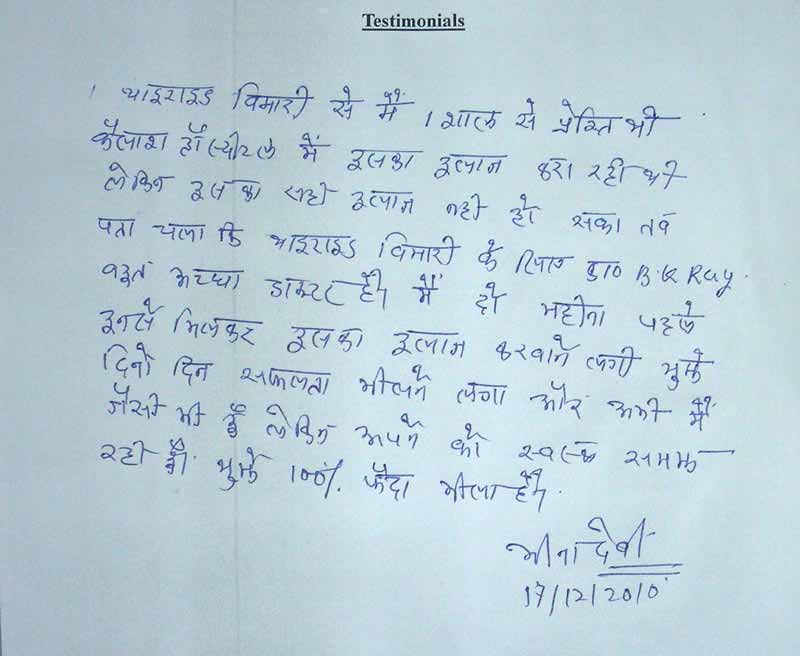 Testimonials
। थाइराइड विमारी से मैं 1 शाल से ग्रेस्ति थी
कैलाश हॉस्पीटल में इसका इलाज करा रही थी
लेकिन इसका सही इलाज नही हो सका तव
पता चला कि थाइराइड विमारी के लिए डा० B.K Ray.
वहुत अच्छा डाक्टर हैं। मैं दो महीना पहले
इनसे मिलकर इसका इलाज करवाने लगी मुझे
दिनो दिन सफलता मीलने लगा और अभी मैं
जैसी भी हूँ लेकिन अपने को स्वस्थ समझ
रही हूँ। मुझे 100% फैदा मीला हैं।
मीना देवी
17/12/2010